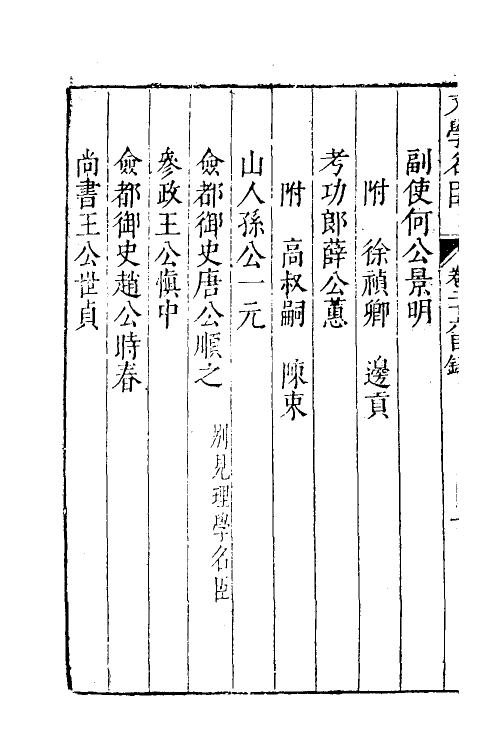 文學名臣
卷二十六目錄
副使何公景明
附 徐禎卿 邊貢
考功郎薛公蕙
附 高叔嗣 陳束
山人孫公一元
僉都御史唐公順之 别見理學名臣
參政王公愼中
僉都御史趙公時春
尚書王公世貞